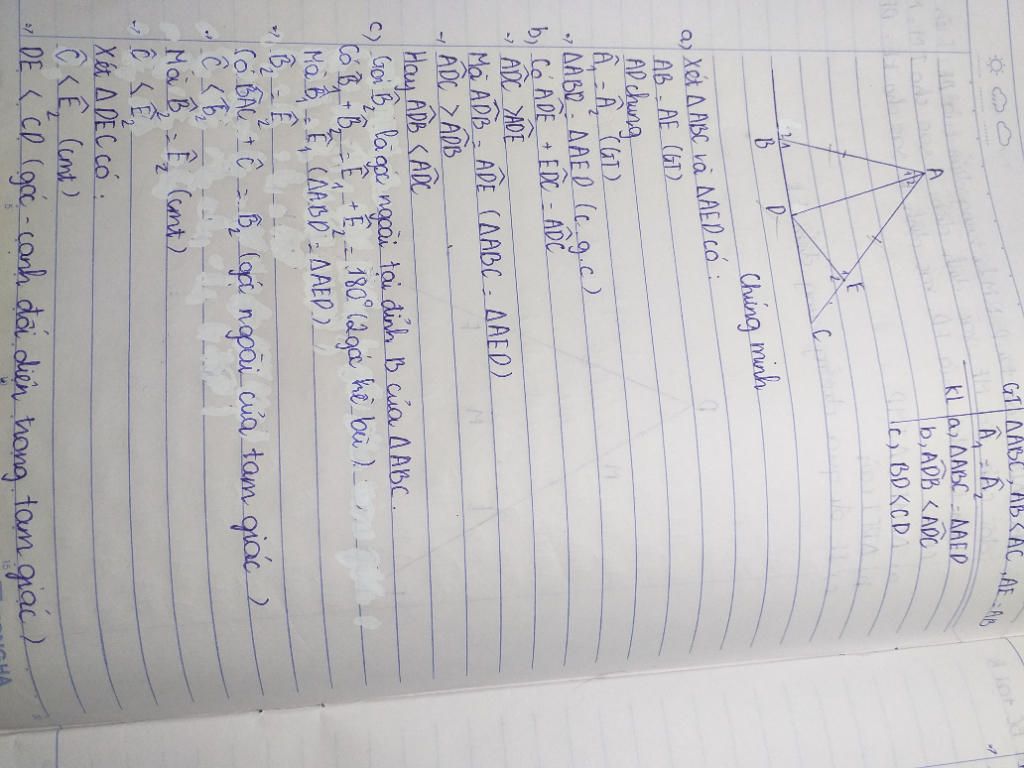 GT | ΔABC, AB < AC, AE = AB
Â₁ = Â₂
kl | a, ΔABC = ΔAED
b, ADB̂ < ADĈ
c, BD < CD
A
1 2
B
1
D
E
1
2
C
Chứng minh
a) Xét ΔABC và ΔAED có:
AB = AE (GT)
Â₁ = Â₂ (GT)
AD chung
⇒ ΔABD = ΔAED (c.g.c)
b) Có ADÊ + EDĈ = ADĈ
⇒ ADĈ > ADÊ
Mà ADB̂ = ADÊ (ΔABC = ΔAED)
⇒ ADĈ > ADB̂
Hay ADB̂ < ADĈ
c) Gọi B̂₂ là góc ngoài tại đỉnh B của ΔABC.
Có B̂₁ + B̂₂ = Ê₁ + Ê₂ = 180° (2 góc kề bù)
Mà B̂₁ = Ê₁ (ΔABD = ΔAED)
⇒ B̂₂ = Ê₂
Có BAĈ + Ĉ = B̂₂ (góc ngoài của tam giác)
⇒ Ĉ < B̂₂
Mà B̂₂ = Ê₂ (cmt)
⇒ Ĉ < Ê₂
Xét ΔDEC có:
Ĉ < Ê₂ (cmt)
⇒ DE < CD (góc - cạnh đối diện trong tam giác)